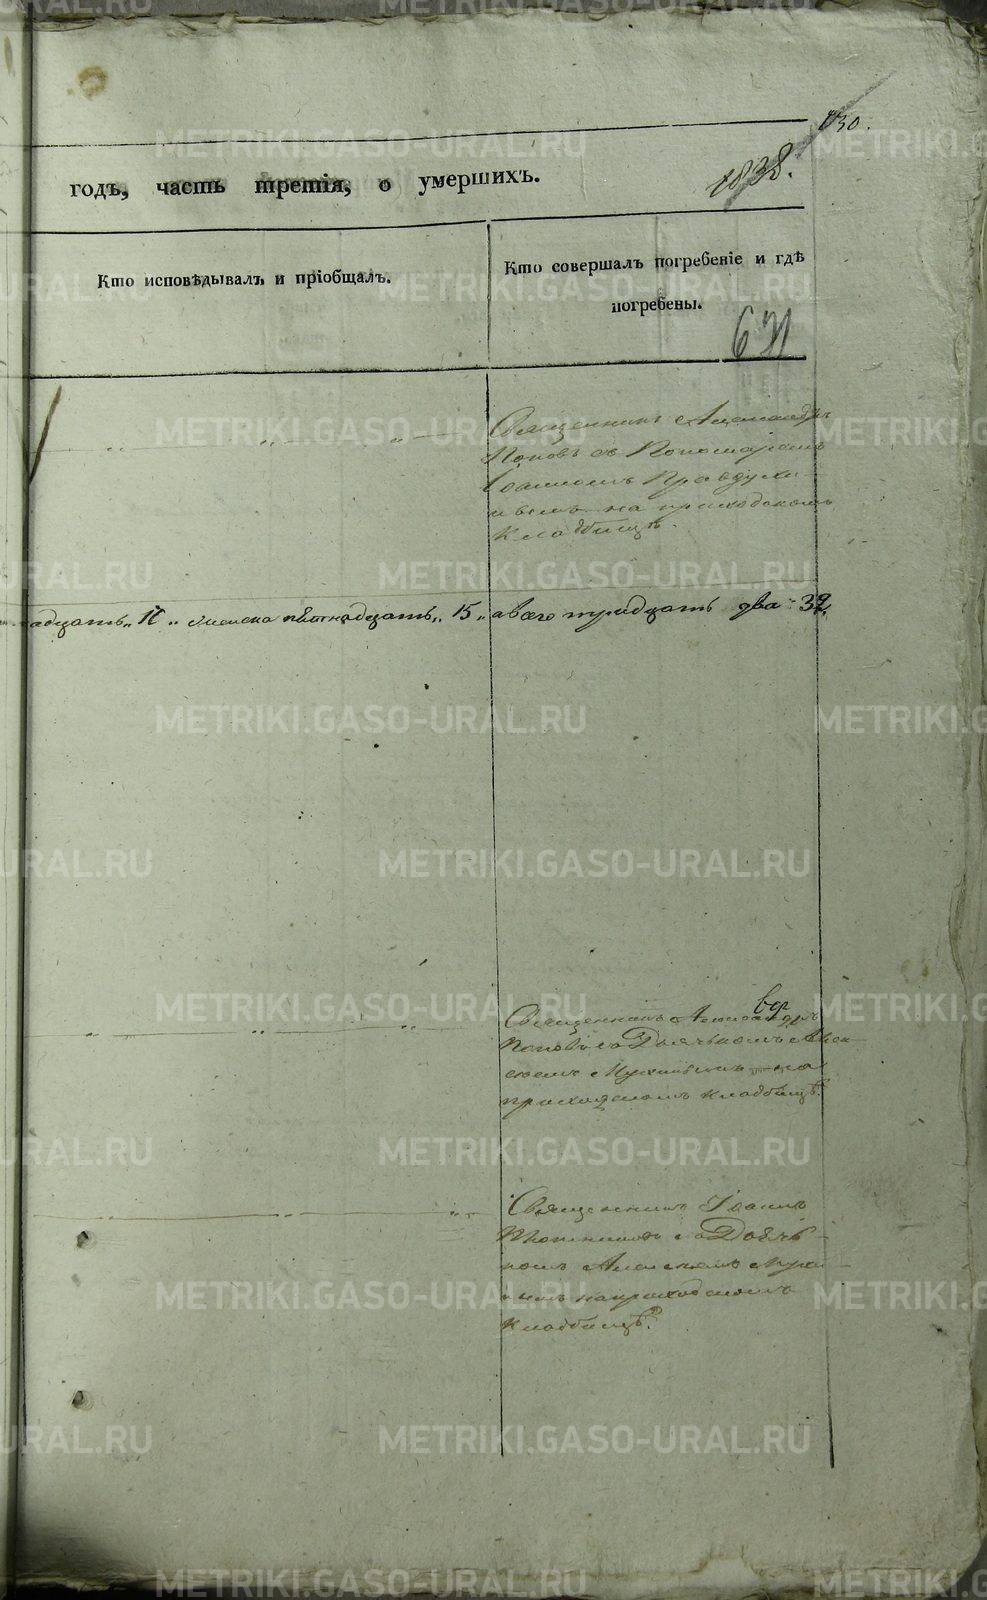 130.
годъ, часть третія, о умершихъ.
1838.
Кто исповѣдывалъ и пріобщалъ.
Кто совершалъ погребеніе и гдѣ
погребены.
Священникъ Александръ
Поповъ съ Пономаремъ
Іоанномъ
на приходскомъ
Кладбищѣ.
адцать „ 17 „ женска пятнадцать „ 15 „ а всего тридцать два 32.
Священникъ Александръ
Поповъ съ Дьячкомъ Алек
сѣемъ на
приходскомъ кладбищѣ.
Священникъ Іоаннъ
съ Дьяч
комъ Алексѣемъ
на приходскомъ
Кладбищѣ.
METRIKI.GASO-URAL.RU